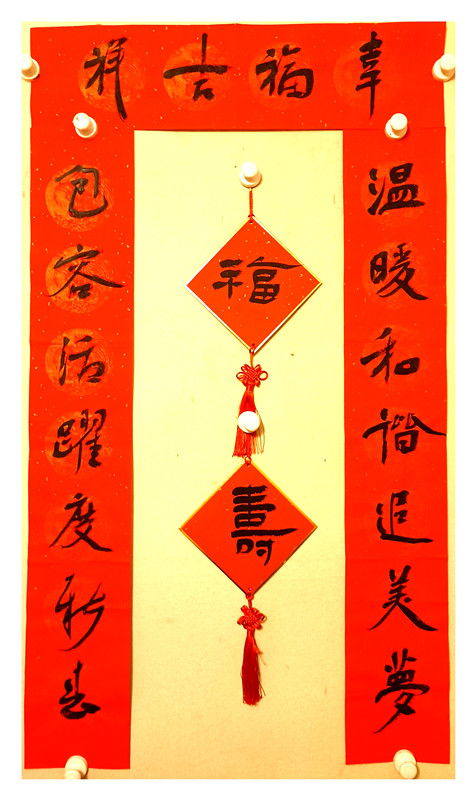 幸福吉祥
温暖和諧追美夢
包容活躍度新春
福
壽